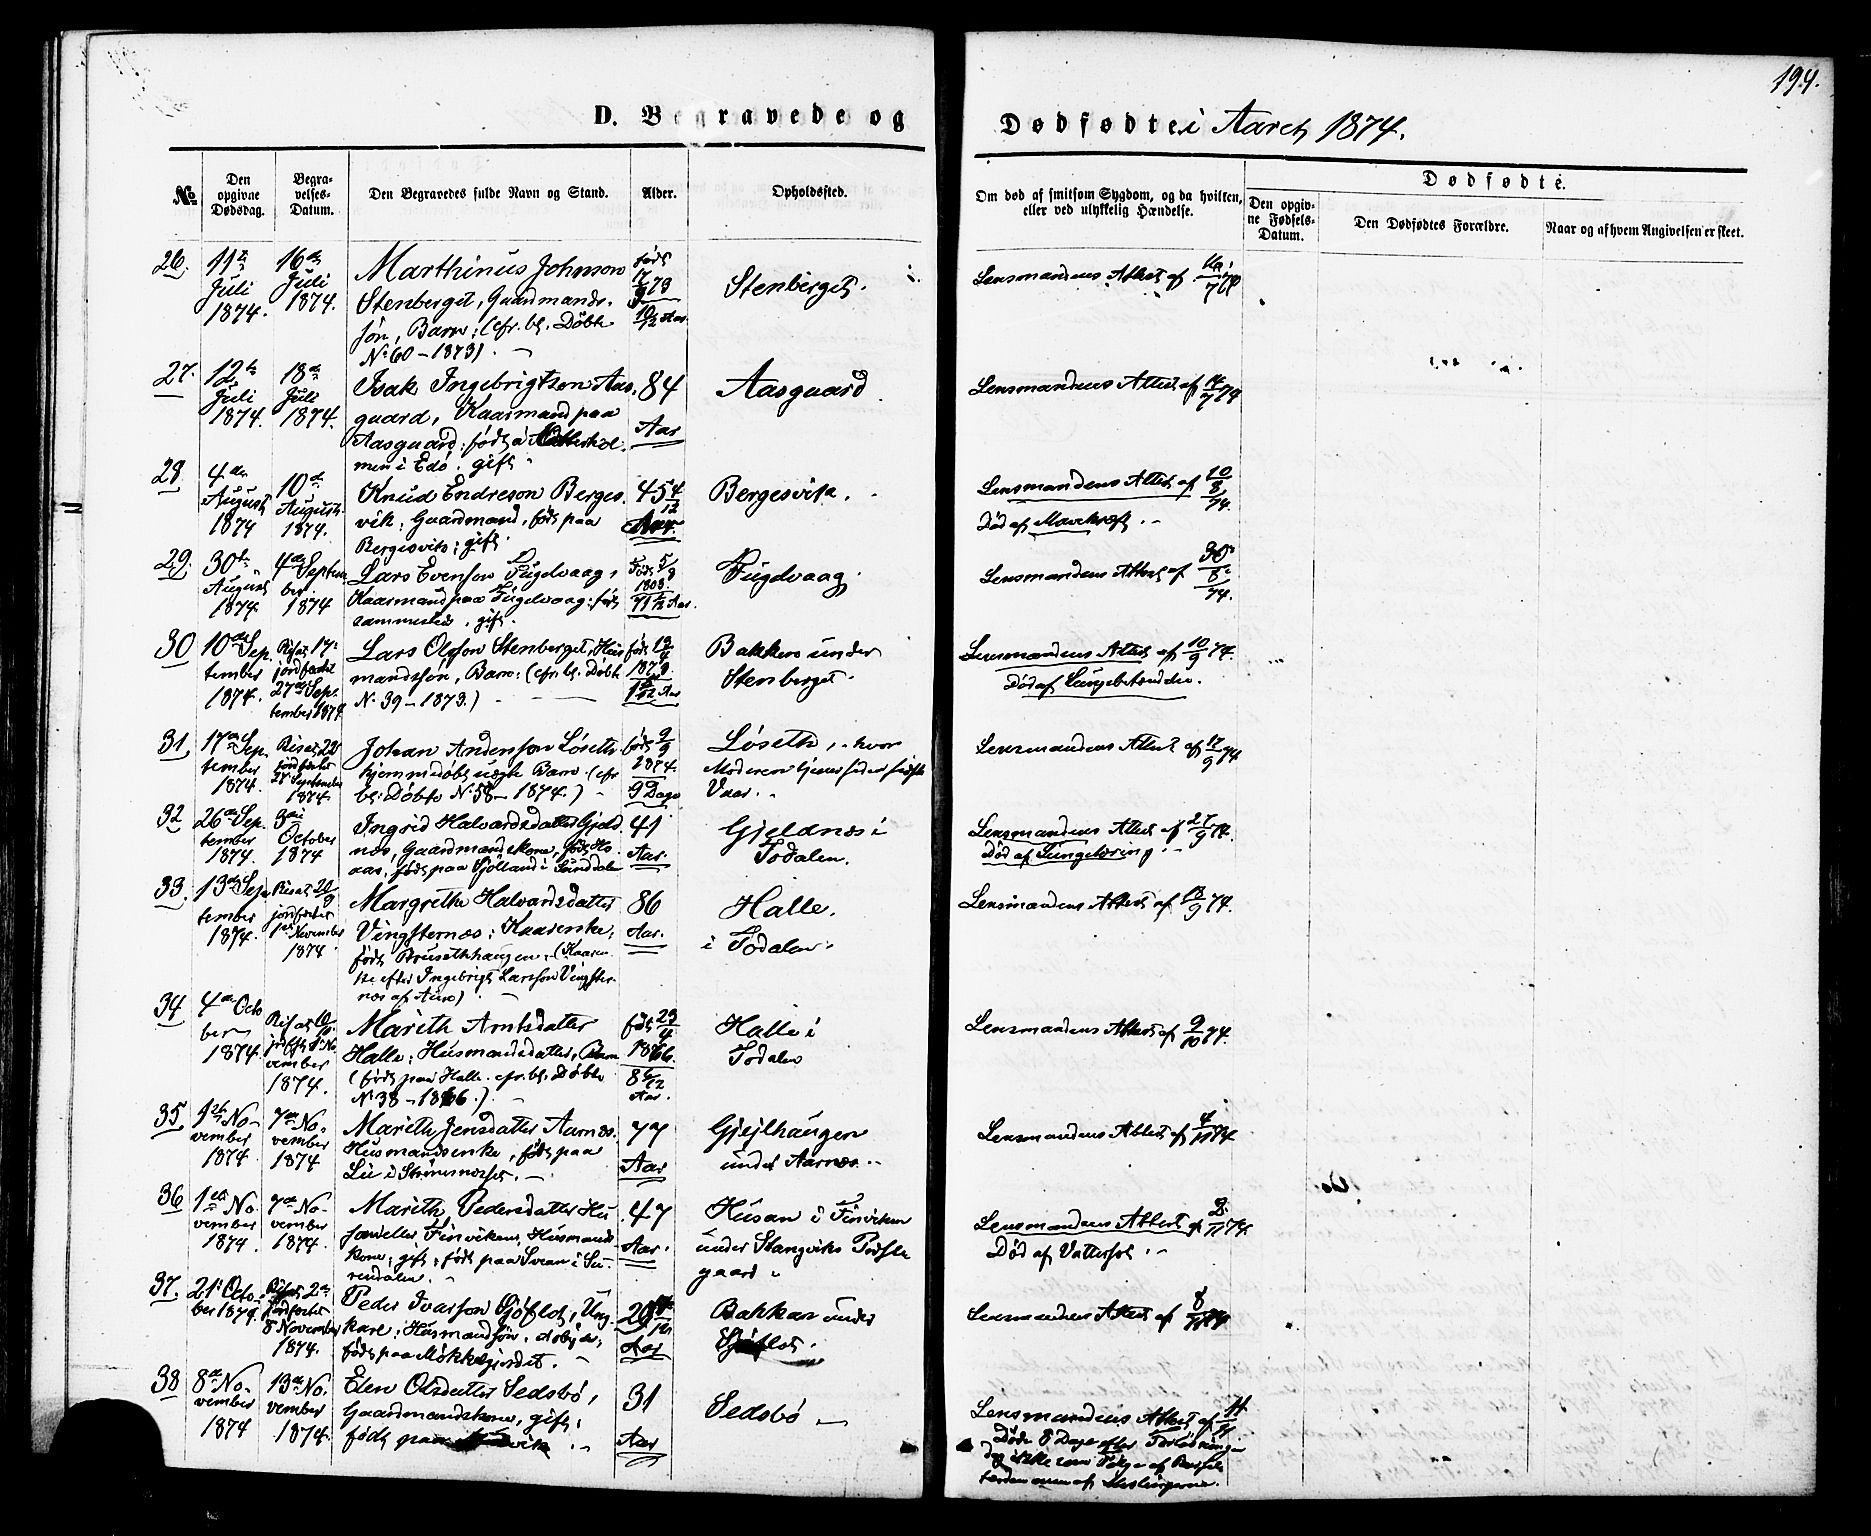 194.
D. Begravede og Dødfødte i Aaret 1874.
No
Den opgivne Dødsdag.
Begravelses-Datum.
Den Begravedes fulde Navn og Stand.
Alder.
Opholdssted.
Om død af smitsom Sygdom, og da hvilken, eller ved ulykkelig Hændelse.
Dødfødte.
Den opgivne Fødsels-Datum.
Den Dødfødtes Forældre.
Naar og af hvem Angivelsen er skeet.
26.
11te Juli 1874.
16de Juli 1874.
Marthinus Johnson
Stenberget, Gaardmands-
søn, Barn; (cfr. bl. Døbte
No 60 – 1873)
født 17/9 73
10/12 Aar
Stenberget.
Lensmandens Attest af 16/7 74
27.
12te Juli 1874.
18de Juli 1874.
Isak Ingebrigtson Aas-
guard, Kaarmand paa
Aasguard; født a
men i Edø. gift
84 Aar
Aasguard
Lensmandens Attest af 14/7 74
28
4de August 1874
10de August 1874.
Knud Endreson Berges-
vik; Gaardmand, født paa
Bergesvik; gift.
45 4/12 Aar.
Bergesvik.
Lensmandens Attest af 10/8 74.
Død af Mavekræft.
29.
30te August 1874.
4de September 1874
Lars Evenson Fugelvaag,
Kaarmand paa Fugelvaag; født
sammested, gift.
Født 5/9 1803.
Aar.
Fugelvaag.
Lensmandens Attest af 30/8 74.
30
10de September 1874.
jordfæstet 27de September 1874
Lars Olsson Stenberget, Hus-
mandssøn, Barn; (cfr. bl. Døbte
No 39 – 1873.)
født
Aar
Bakken under
Stenberget.
Lensmandens Attest af 10/9 74.
Død af Lungebetændelse.
31.
17de September 1874.
jordfæstet 27 September 1874.
Johan Anderson Løseth
hjemmedøbt uægte Barn (cfr
bl. Døbte No 58 – 1874.)
født 9/9 1874.
9 Dage
Løseth, hvor
Moderen tjener siden sidste
Vaar.
Lensmandens Attest af 17/9 74
32
26de September 1874.
3die October 1874
Ingrid Halvardsdatter Gjeld-
næs, Gaardmandskone, født Ho-
aas, født paa Sjølland i Sunddalen
41 Aar.
Gjeldnæs i
Todalen.
Lensmandens Attest af 27/9 74.
Død af Lungetæring.
33.
13de September 1874.
jordfæstet 1ste November 1874
Margrethe Halvardsdatter
Vingsternæs; Kaarenke;
født Brusethhaugen, (Kaaren-
ke efter Ingebrigt Larsson Vingster-
næs af Aure)
86 Aar.
Halle.
i Todalen.
Lensmandens Attest af 18/9 74.
34
4de October 1874.
November 1874.
Marith Arntsdatter
Halle; Husmandsdatter, Barn
(født paa Halle. cfr. bl. Døbte
No 38 – 1866.)
født 23/4 1866.
Aar.
Halle i
Todalen
Lensmandens Attest af 9/10 74.
35.
November 1874.
7de November 1874
Marith Jensdatter Aarnæs.
Husmandsenke, født paa
77 Aar
Gjejlhaugen
under Aarnæs.
Lensmandens Attest af 4/11 74
36
1ste November 1874.
7de November 1874.
Marith Pedersdatter Hu-
san eller Finviken; Husmands-
kone; gift; født paa Svean i Su-
rendalen.
47 Aar.
Husan i Finviken
under Stangviks Præste-
gaard
Lensmandens Attest af 3/11 74
Død af Vattersot.
37.
21de October 1874.
jordfæstet 8 November 1874.
Peder Ivarson Sjøflot, Ung-
karl; Husmandssøn,
født paa
Aar
Bakkan under
Sjøflot.
Lensmandens Attest af 8/11 74
38
8de November 1874
13de November 1874.
Elen Olsdatter Sedsbø,
Gaardmandskone, gift;
født paa
31 Aar
Sedsbø
Lensmandens Attest af 11/11
Døde 8 Dage efter
dog ikke som Følge af